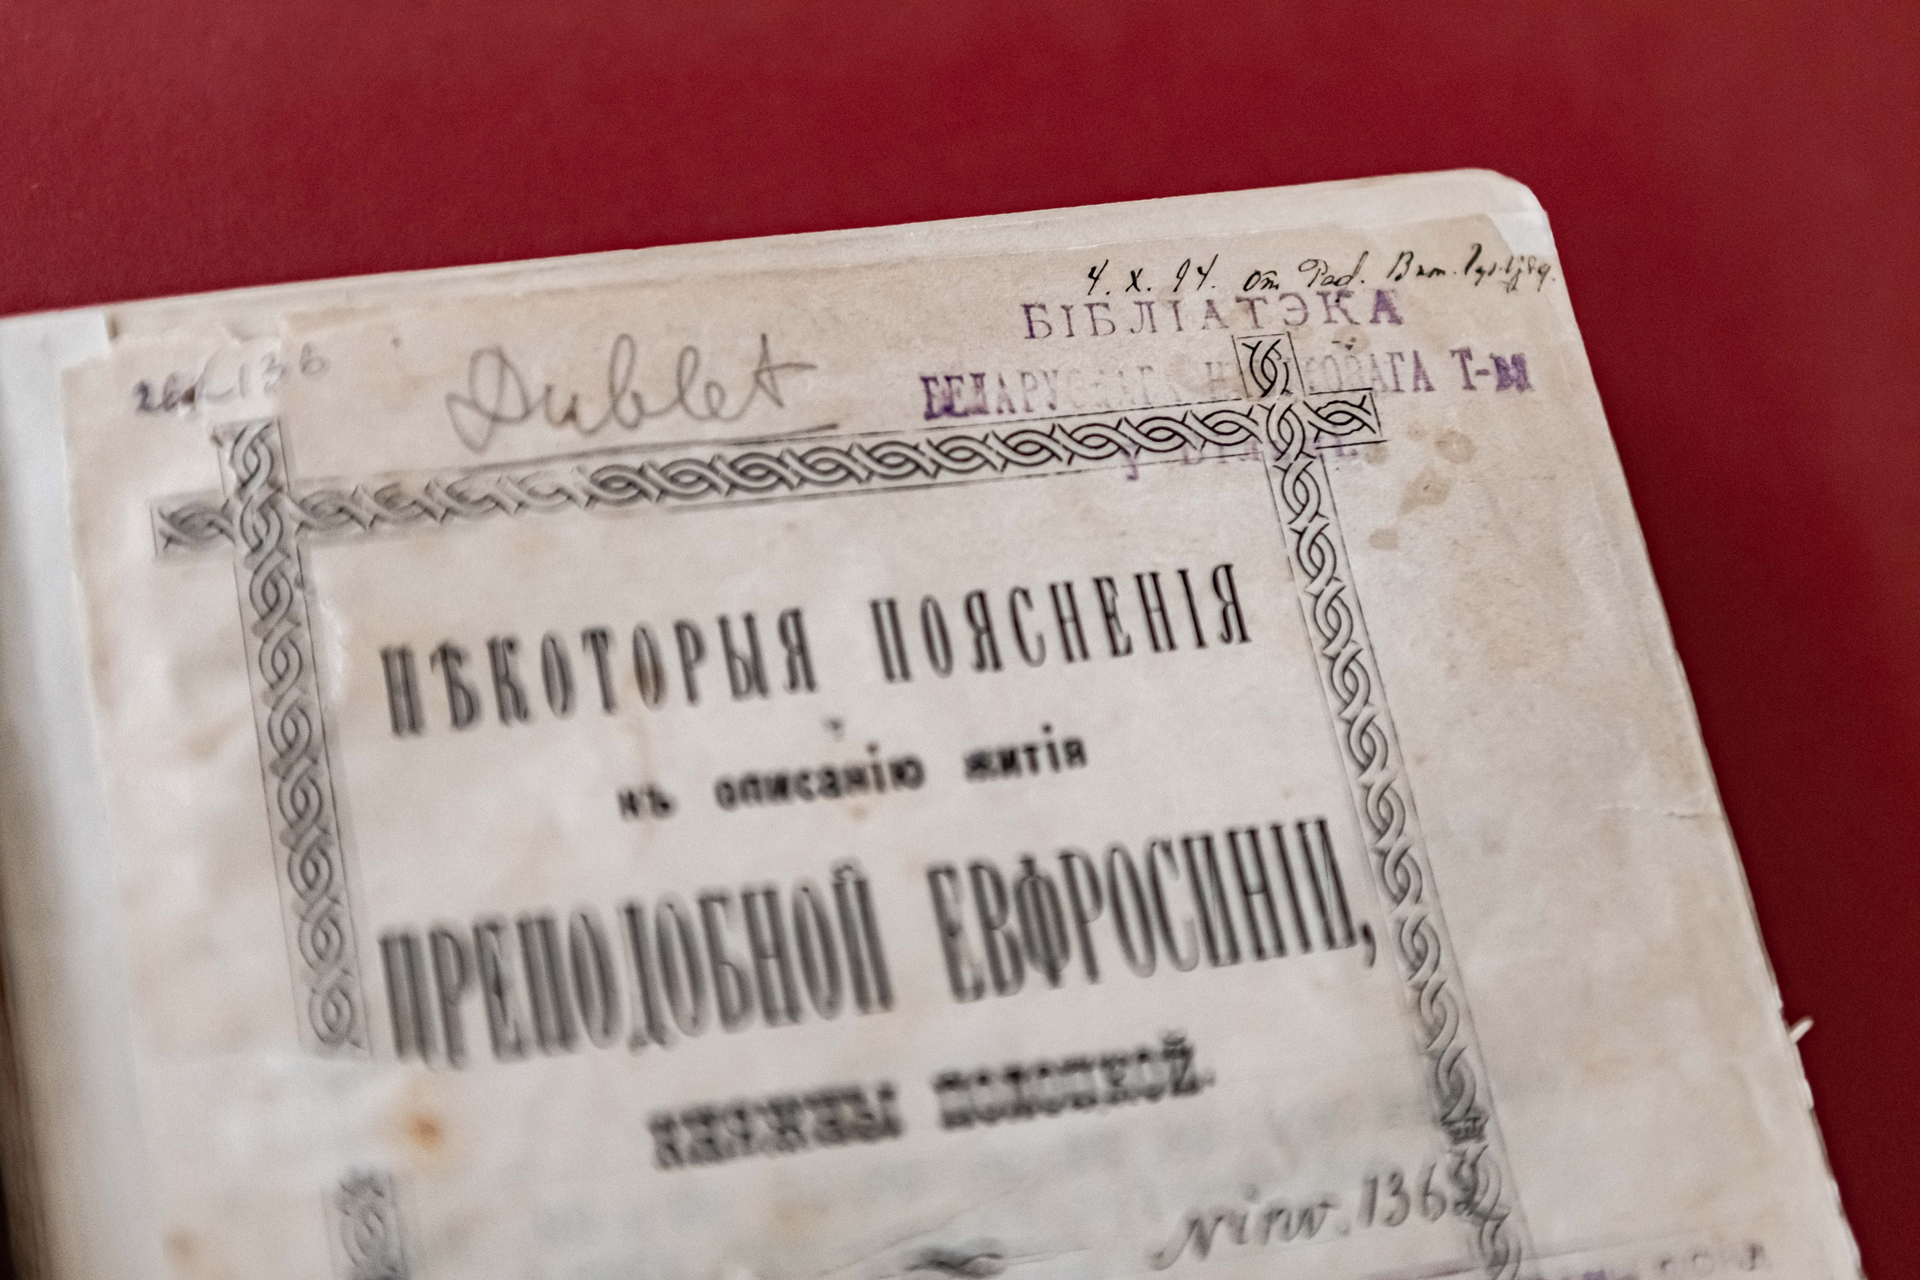 4. X. 94. от
БІБЛІАТЭКА
БЕЛАРУСКАГА НАВУКОВАГА Т-ва
Dublet
НѢКОТОРЫЯ ПОЯСНЕНІЯ
къ описанію житія
ПРЕПОДОБНОЙ ЕВФРОСИНІИ,
КНЯЖНЫ ПОЛОЦКОЙ.
N inw. 136